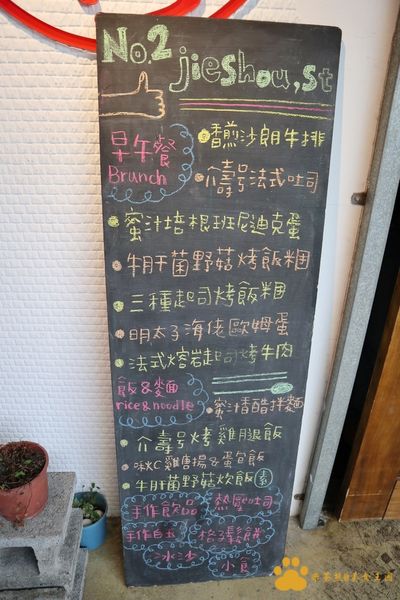 No.2
jieshou.st
早午餐
Brunch
香煎沙朗牛排
介壽号法式吐司
蜜汁培根班尼迪克蛋
牛肝菌野菇烤飯糰
三種起司烤飯糰
明太子海佬歐姆蛋
法式熔岩起司烤牛肉
飯&麵
rice&noodle
蜜汁香酷拌麵
介壽号烤雞腿飯
啾C雞唐揚&蛋包飯
牛肝菌野菇炊飯 素
手作飲品
熱壓吐司
手作
鬆餅
冰沙
小食